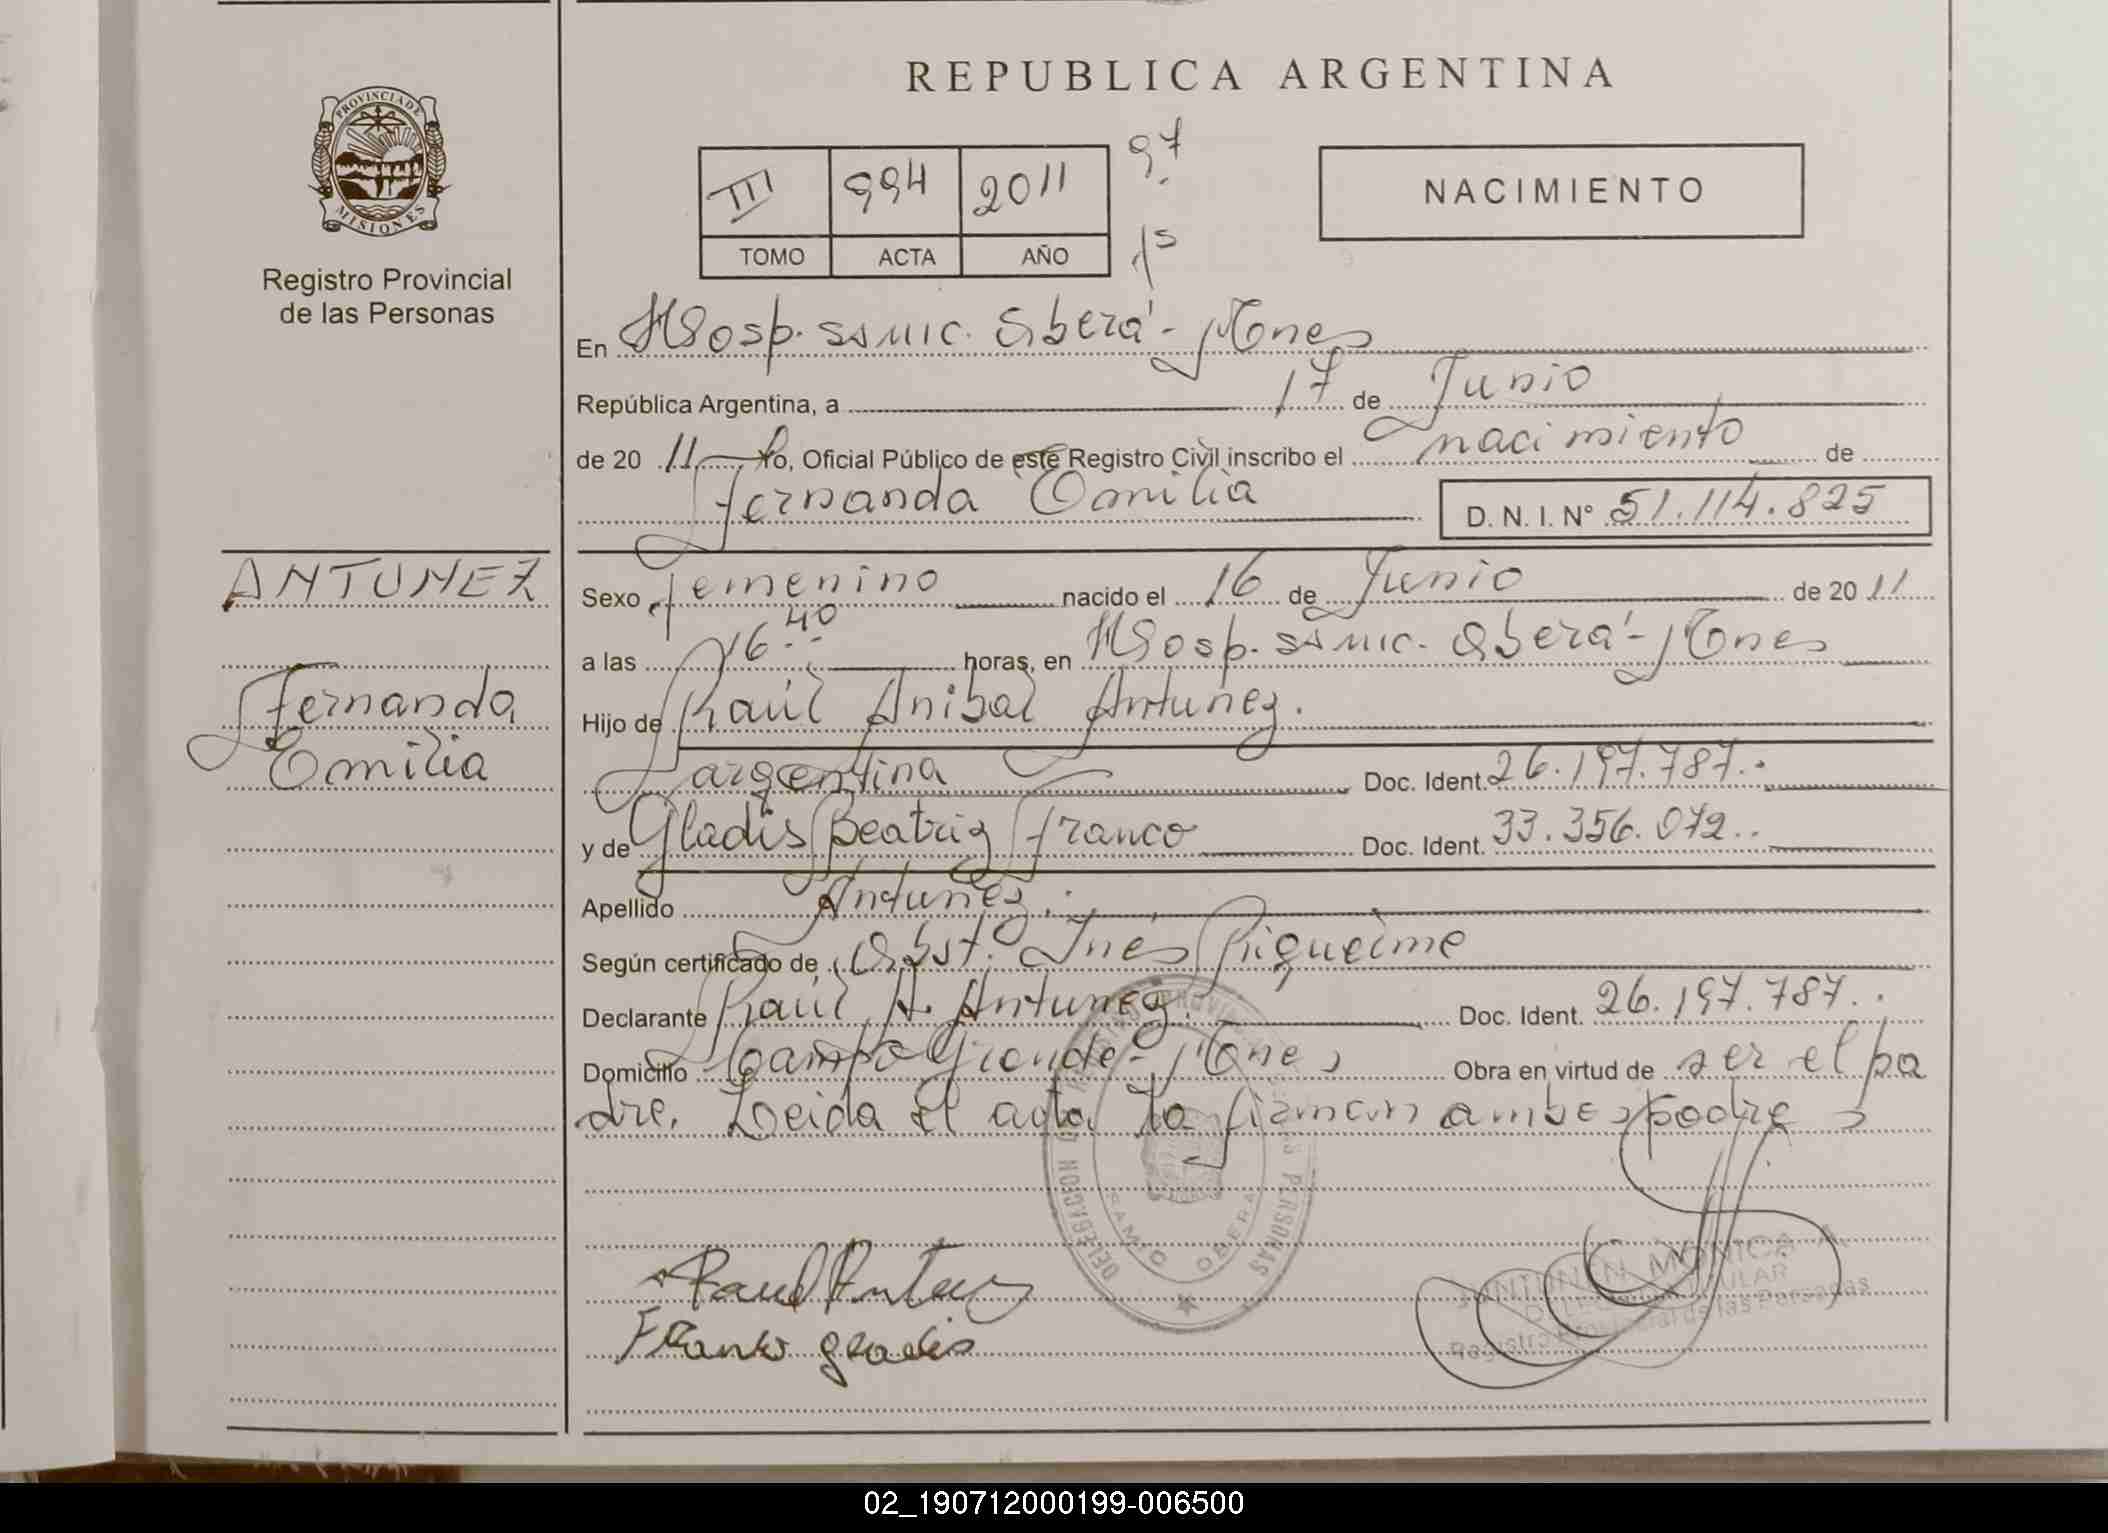 REPUBLICA ARGENTINA
PROVINCIA DE
MISIONES
Registro Provincial
de las Personas
III 994 2011
TOMO ACTA AÑO
97
NACIMIENTO
En Hosp. SAMIC. Oberá - Mnes
República Argentina, a 17 de Junio
de 20 11 Yo, Oficial Público de este Registro Civil inscribo el nacimiento de
Fernanda Emilia D. N. I. N° 51.114.825
ANTUNEZ
Fernanda
Emilia
Sexo femenino nacido el 16 de Junio de 20 11
a las 16 40 horas, en Hosp. SAMIC. Oberá - Mnes
Hijo de Raúl Anibal Antunez.
argentina Doc. Ident. 26.197.787..
y de Gladis Beatriz Franco Doc. Ident. 33.356.072..
Apellido Antunez.
Según certificado de Obst. Inés Riquelme
Declarante Raúl A. Antunez. Doc. Ident. 26.197.787..
Domicilio Campo Grande - Mnes Obra en virtud de ser el pa
dre. Leida el acta la firman ambos padres
DELEGACION
PERSONAS
RAMIO OBERA
Raul Antunez
Franko gladis
MONICA
Registro Provincial de las Personas
02_190712000199-006500